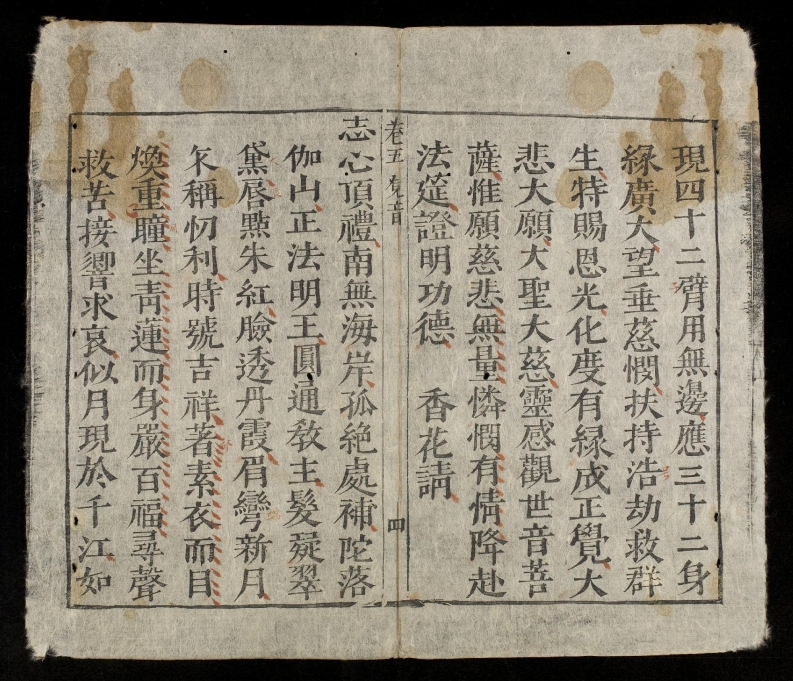 現四十二臂用無邊應三十二身
緣廣大望垂慈憫扶持浩劫救群
生特賜恩光化度有緣成正覺大
悲大願大聖大慈靈感觀世音菩
薩惟願慈悲無量憐憫有情降赴
法筵證明功德　香花請
卷五 音
四
志心頂禮南無海岸孤絕處補陀落
伽山正法明王圓通教主髮凝翠
黛唇點朱紅臉透丹霞眉彎新月
乍稱忉利時號吉祥著素衣而目
煥重瞳坐青蓮而身嚴百福尋聲
救苦接響求哀似月現於千江如